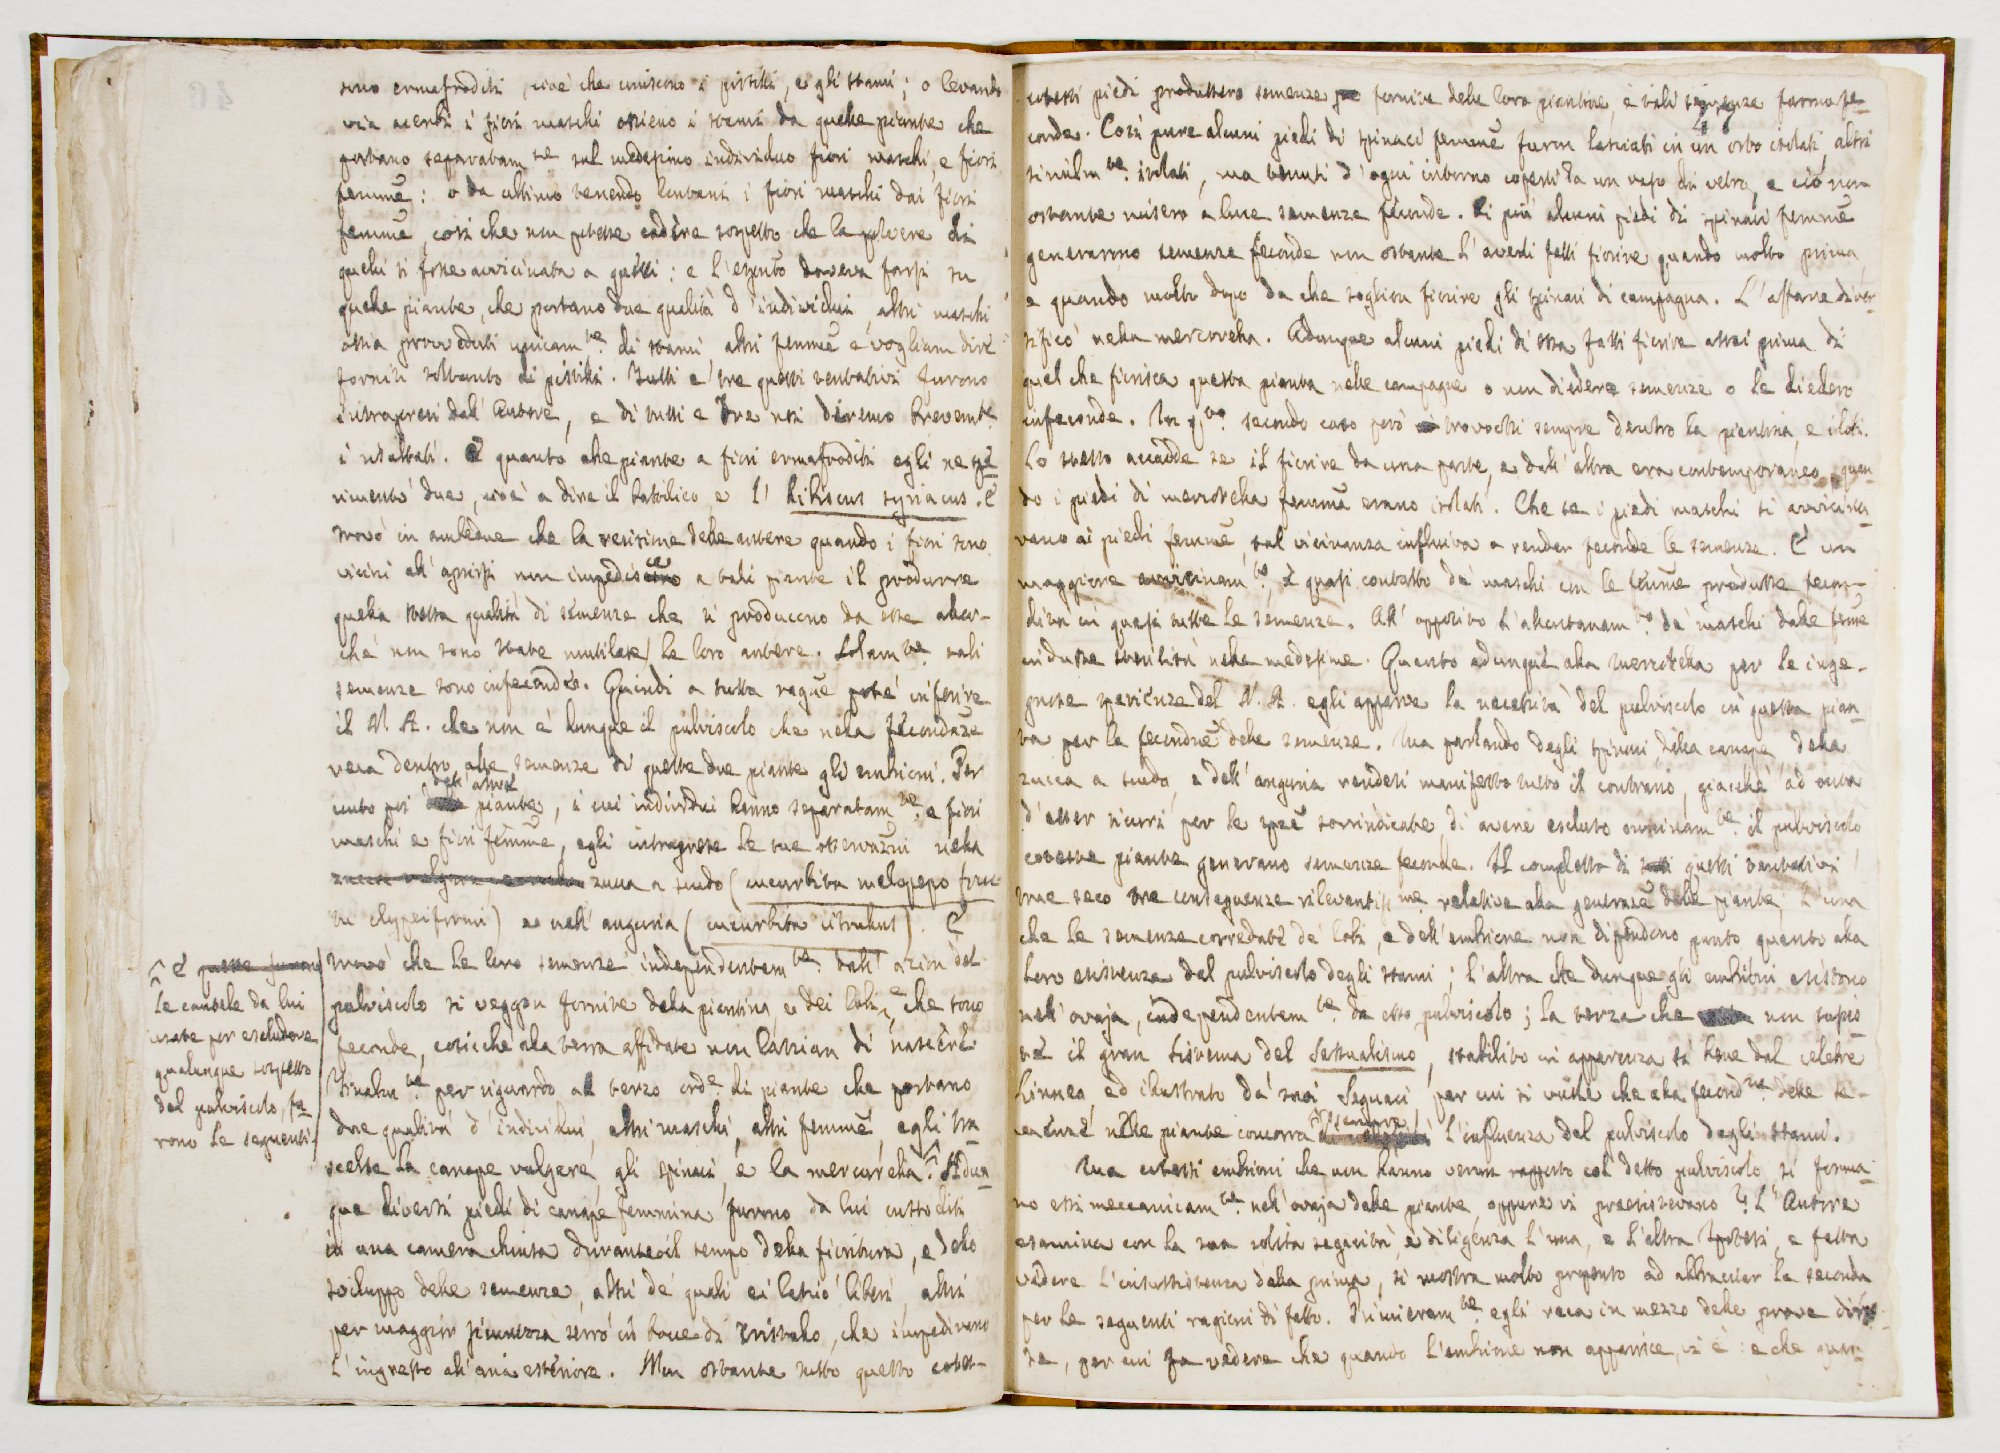 sono ermafroditi, cioè che uniscono i pistilli, e gli stami; o levando
via acerbi i fiori maschi ossieno i stami da quelle piante che
portano separatam.te sul medesimo individuo fiori maschi, e fiori
femmē: o da ultimo tenendo lontani i fiori maschi dai fiori
femmē, così che non potesse cadere sospetto che la polvere di
quelli si fosse avvicinata a questi: e l'esperim.to doveva farsi su
quelle piante, che portano due qualità d'individui, altri maschi
ossia provveduti unicam.te di stami, altri femmē e vogliam dire
forniti soltanto di pistilli. Tutti e tre questi tentativi furono
intrapresi dall'Autore, e di tutti e tre noi diremo brevem.te
i risultati. E quanto alle piante a fiori ermafroditi egli ne spe-
rimentò due, cioè a dire il basilico, e l'hibiscus syriacus. E
trovò in ambedue che la recisione delle antere quando i fiori sono
vicini all'aprirsi non impedisce a tali piante il produrre
quella stessa qualità di semenze che si producono da esse allor-
chè non sono state mutilate le loro antere. Solam.te tali
semenze sono infeconde. Quindi a tutta ragiōe potè inferire
il N. A. che non è dunque il pulviscolo che nella fecondaz̄e
reca dentro alle semenze di queste due piante gli embrioni. Per
conto poi dell'altre piante, i cui individui hanno separatam.te e fiori
maschi e fiori femmē, egli intraprese le sue osservaz̄ni nella
zucca a scudo (cucurbita melopepo fruc-
tu clypeiformi) e nell'anguria (cucurbita citrullus). E
trovò che le loro semenze independentem.te dall'azion del
pulviscolo si veggon fornite della piantina, e dei lobi, e che sono
feconde, cosicchè alla terra affidate non lascian di nascere.
Finalm.te per riguardo al terzo ord.e di piante che portano
due qualità d'individui, altri maschi, altri femmē, egli tra
scelse la canape volgare, gli spinaci, e la mercorella. Adun-
que diversi piedi di canape femmina furono da lui custoditi
in una camera chiusa durante il tempo della fioritura, e dello
sviluppo delle semenze, altri de' quali ei lasciò liberi, altri
per maggior sicurezza serrò in bocce di cristallo, che impedivano
l'ingresso all'aria esteriore. Non ostante tutto questo cotes-
E
le cautele da lui
usate per escludere
qualunque sospetto
del pulviscolo, fu-
rono le seguenti.
cotesti piedi produssero semenze fornite delle loro piantine, e tali semenze furono fe-
conde. Così pure alcuni piedi di spinaci femmē furon lasciati in un orto isolati, altri
similm.te isolati, ma tenuti d'ogni intorno coperti da un vaso di vetro, e ciò non
ostante misero a luce semenze feconde. Di più alcuni piedi di spinaci femmē
generarono semenze feconde non ostante l'averli fatti fiorire quando molto prima,
e quando molto dopo da che soglion fiorire gli spinaci di campagna. L'affare diver-
sificò nella mercorella. Adunque alcuni piedi di essa fatti fiorire assai prima di
quel che fiorisca questa pianta nelle campagne o non diedero semenze o le diedero
infeconde. In q.to secondo caso però trovochi sempre dentro la piantina, e i lobi.
Lo stesso accadde se il fiorire da una parte, e dall'altra era contemporaneo, quan-
do i piedi di mercorella femmē erano isolati. Che se i piedi maschi si avvicina-
vano ai piedi femmē, tal vicinanza influiva a render feconde le semenze. E un
maggiore avvicinam.to, e quasi contatto de' maschi con le femmē produsse fecon-
dità in quasi tutte le semenze. All'opposito l'allontanam.to de' maschi dalle femmē
indusse sterilità nelle medesime. Quanto adunque alla mercorella per le inge-
gnose sperienze del N. A. egli apparve la necessità del pulviscolo in questa pian-
ta per la fecondaz̄e delle semenze. Ma parlando degli spinaci, della canape, della
zucca a scudo, e dell'anguria rendesi manifesto tutto il contrario, giacchè ad onta
d'esser sicuri per le spze sovrindicate, di avere escluso onninam.te il pulviscolo
coteste piante generano semenze feconde. Il complesso di questi tentativi
trae seco tre conseguenze rilevantiss.me relative alla generaz̄e delle piante, l'una
che le semenze corredate de' lobi, e dell'embrione non dipendono punto quanto alla
loro esistenza dal pulviscolo degli stami; l'altra che dunque gli embrioni esistono
nell'ovaja, independentem.te da esso pulviscolo; la terza che non sussis-
te il gran Sistema del Sessualismo, stabilito in apparenza sì bene dal celebre
Linneo, ed illustrato da' suoi Seguaci, per cui si vuole che alla fecond.ne delle se-
menze nelle piante concorra sempre l'influenza del pulviscolo degli stami.
Ma cotesti embrioni che non hanno verun rapporto col detto pulviscolo, si forma-
no essi meccanicam.te nell'ovaja delle piante, oppure vi preesistevano? L'Autore
esamina con la sua solita sagacità, e diligenza l'una, e l'altra Ipotesi, e fatta
vedere l'insussistenza della prima, si mostra molto propenso ad abbracciar la seconda
per le seguenti ragioni di fatto. Primieram.te egli reca in mezzo delle prove diret-
te, per cui fa vedere che quando l'embrione non apparisce, vi è: e che quan-